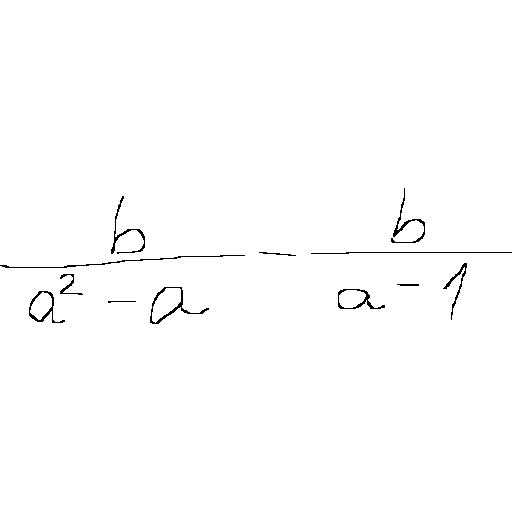 \frac{b}{a^2 - a} - \frac{b}{a - 1}